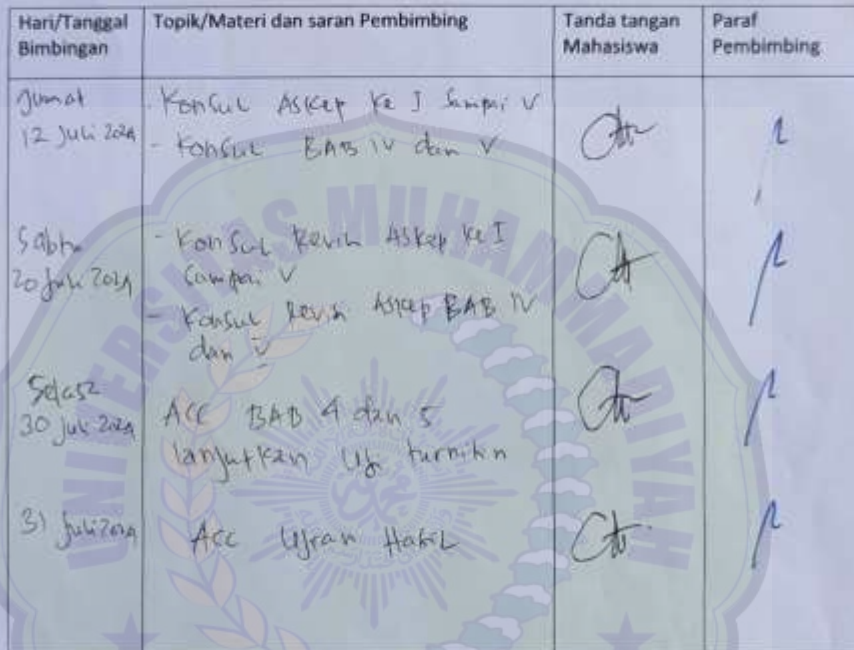 Hari/Tanggal Bimbingan
Topik/Materi dan saran Pembimbing
Tanda tangan Mahasiswa
Paraf Pembimbing
Jumat
12 Juli 2024
- Konsul ASKep Ke I Sampai V
- Konsul BAB IV dan V
Sabtu
20 Juli 2024
- Konsul Revisi ASKep Ke I
Sampai V
- Konsul Revisi ASKep BAB IV
dan V
Selasa
30 Juli 2024
ACC BAB 4 dan 5
lanjutkan Uji turnitin
31 Juli 2024
Acc Ujian Hasil
UNIVERSITAS MUHAMMADIYAH